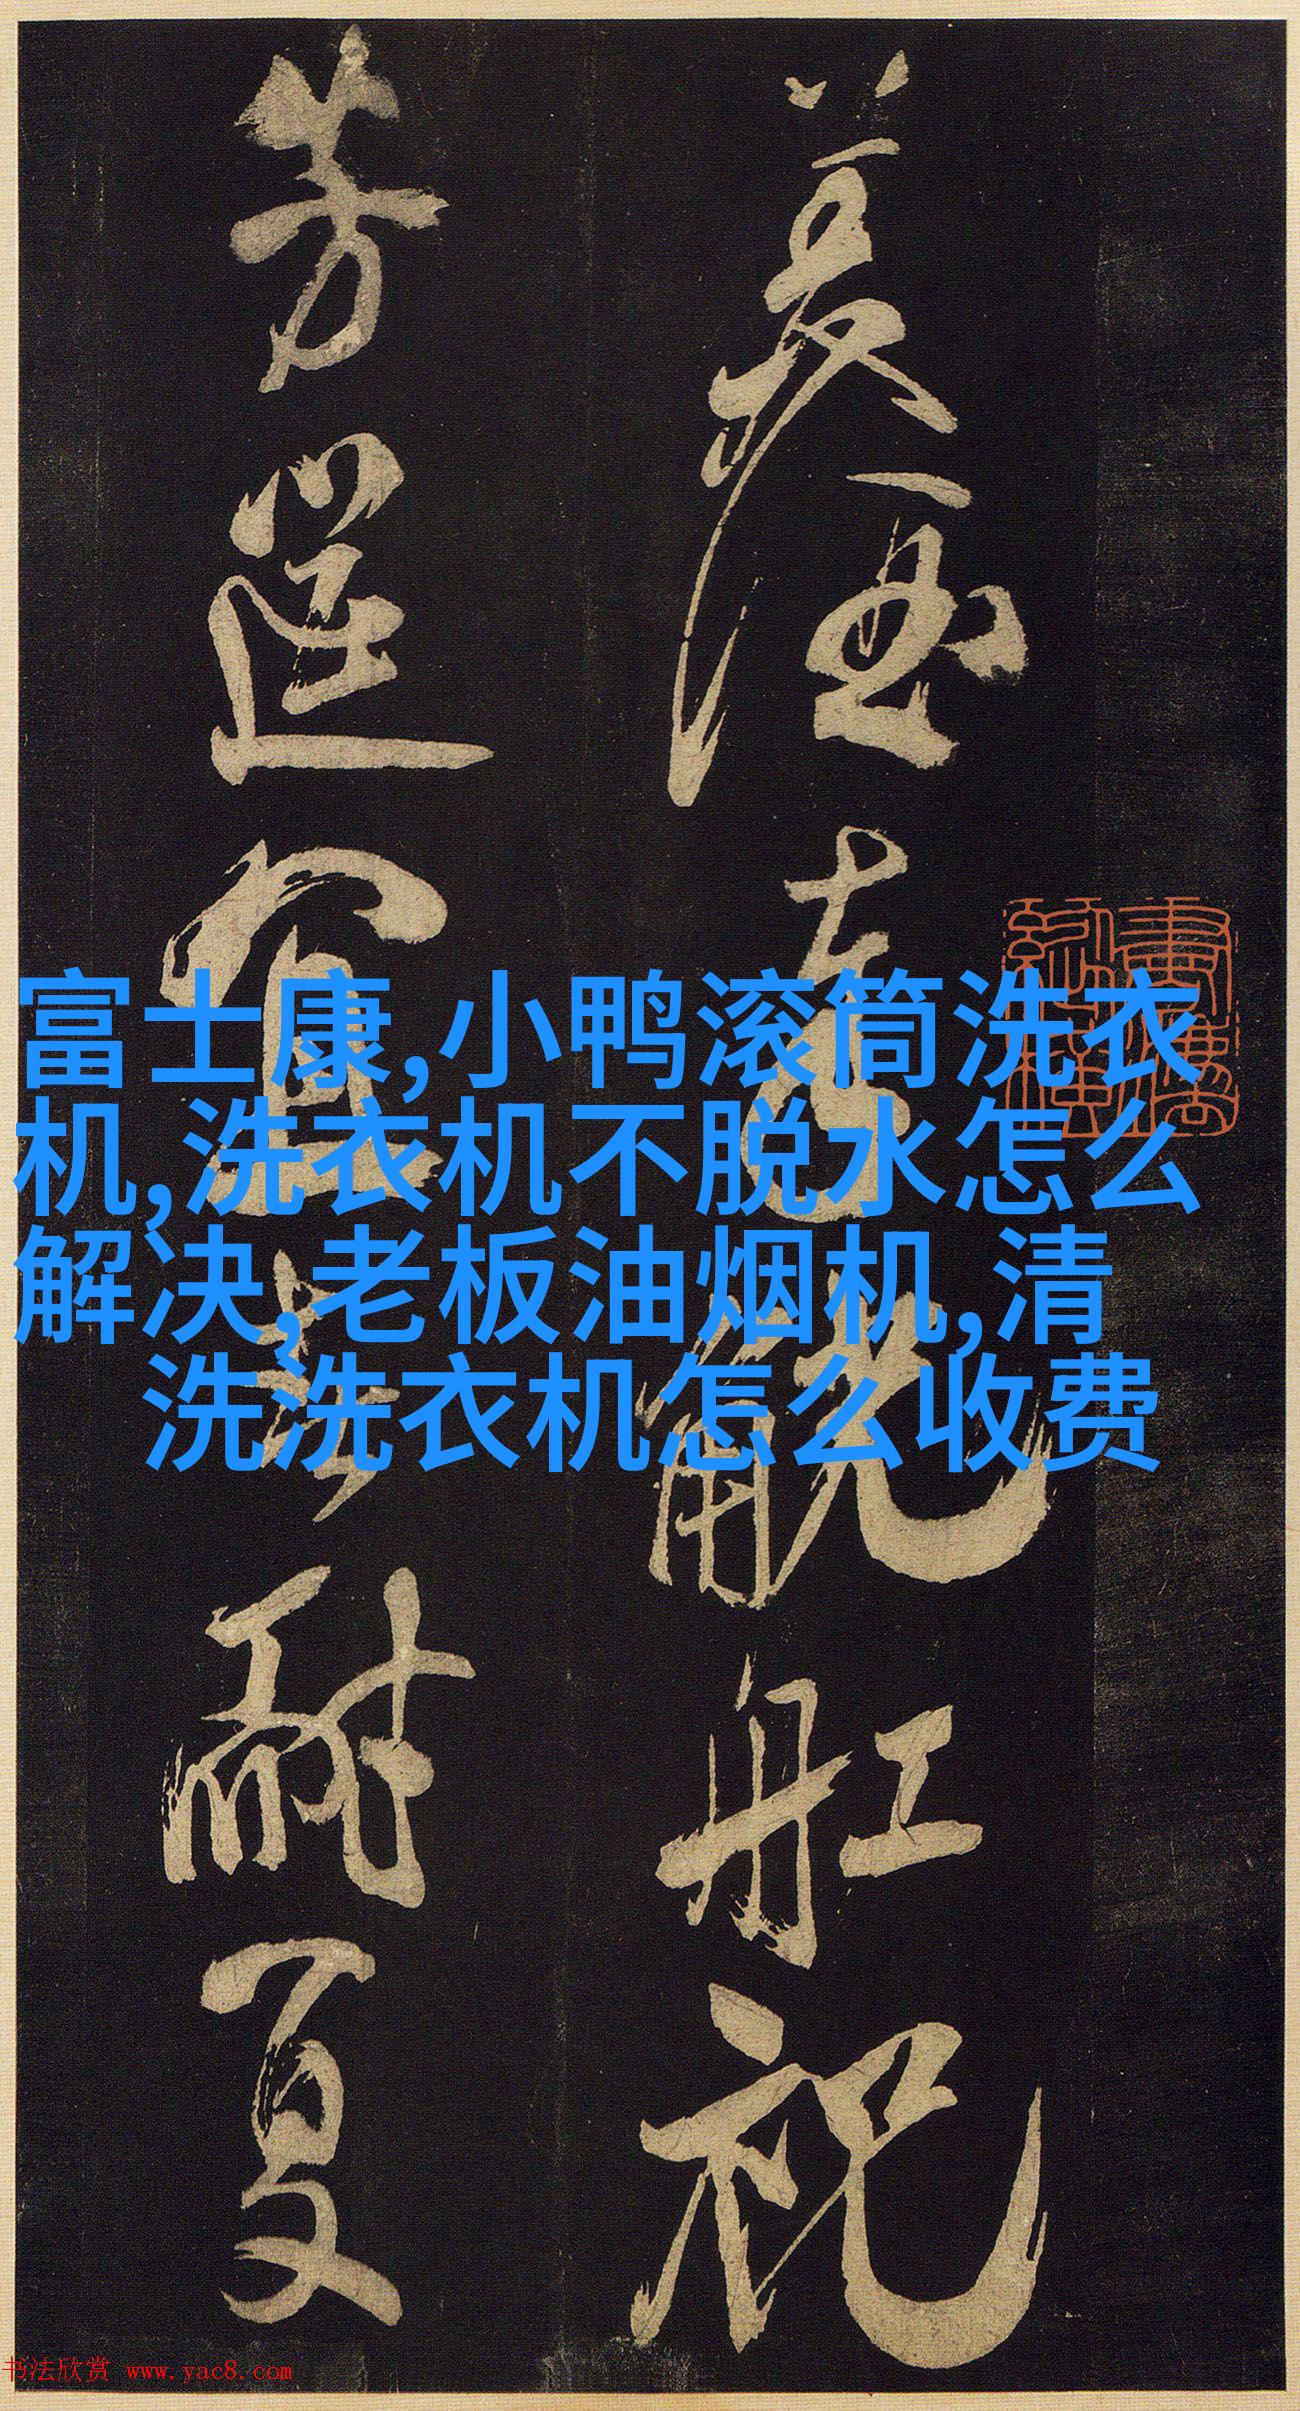 富士康,小鸭滚筒洗衣
机,洗衣机不脱水怎么
解决,老板油烟机,清
洗洗衣机怎么收费
酒春觥舡祝
芳筵宜耐夏
书法欣赏 www.yac8.com